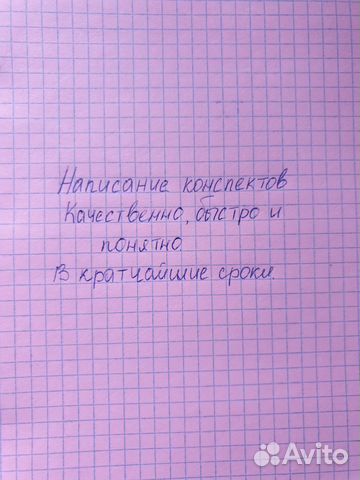 Написание конспектов
Качественно, быстро и
понятно
В кратчайшие сроки.
Avito